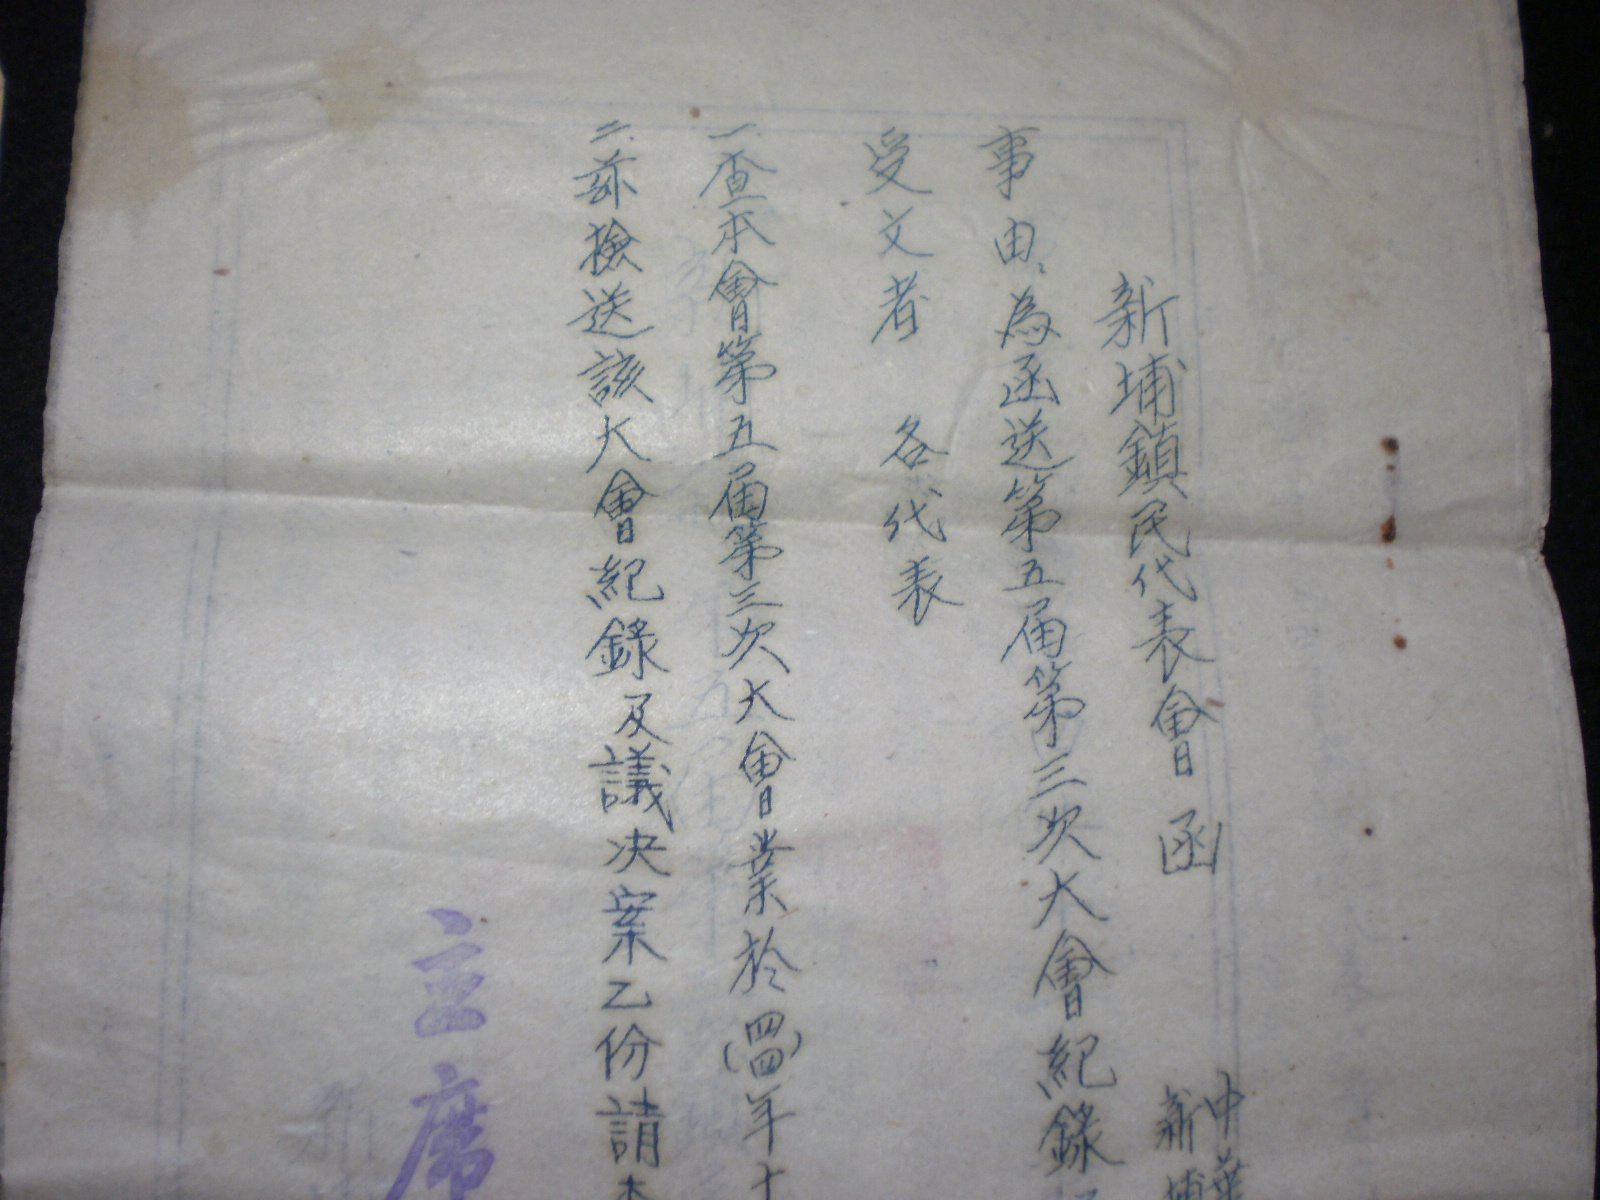 新埔鎮民代表會 函
中華
新埔
事由：為函送第五届第三次大會紀錄
受文者 各代表
一、查本會第五届第三次大會業於(四四)年十
二、茲檢送該大會紀錄及議決案乙份請查
主席